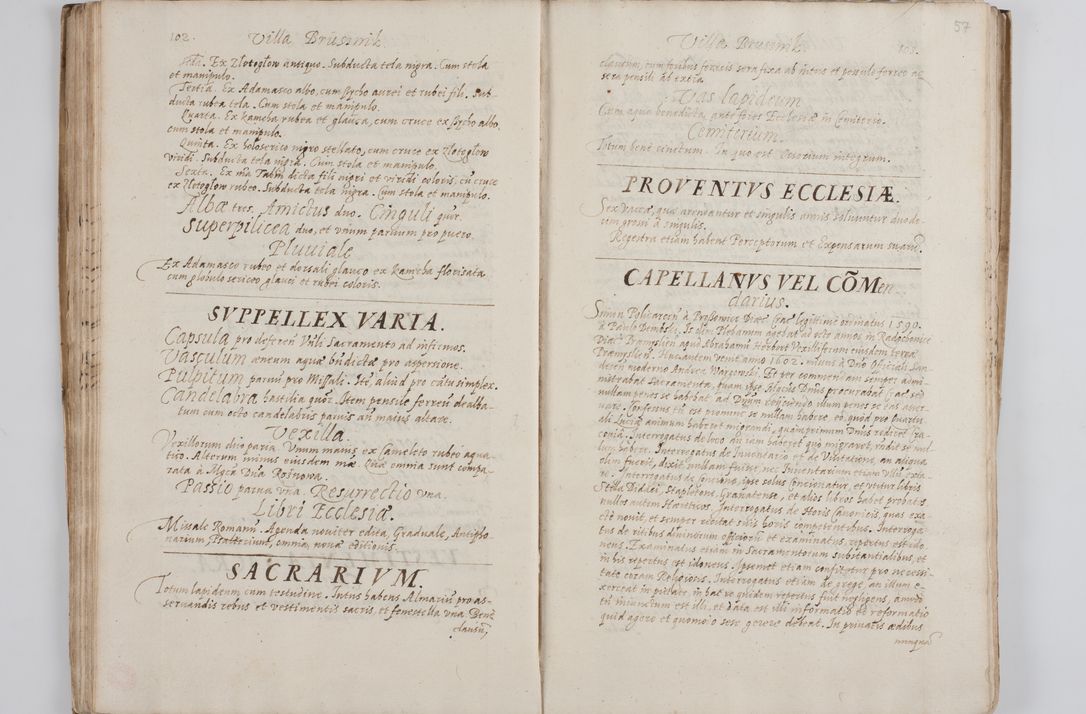 102. Villa Brusinik.
Ex Zlotogłow antiquo. Subducta tela nigra. Cum stola
et manipulo.
Tertia. Ex Adamasco albo, cum psycho aurei et rubei fili. Sub-
ducta rubea tela. Cum stola et manipulo.
Quarta. Ex kamcha rubea et glauca, cum cruce ex psycho albo,
cum stola et manipulo.
Quinta. Ex holoserico nigro stellato, cum cruce ex Zlotogłow
viridi. Subducta tela nigra. Cum stola et manipulo.
Sexta. Ex mã Tabin dicta fili nigri et viridi coloris, cũ cruce
ex Zlotogłow rubeo. Subducta tela nigra. Cum stola et manipulo.
Albæ tres. Amictus duo. Cinguli quřr.
Superpilicea duo, et vnum paruum pro puero.
Pluuiale
Ex Adamasco rubeo et dorsali glauco ex kamcha florisata
cum globulo sericeo glauci et rubri coloris.
SVPPELLEX VARIA.
Capsula pro deferen Vñli Sacramento ad infirmos.
Vasculum æneum aquæ bñdictæ pro aspersione.
Pulpitum paruũ pro Missali. Itẽ aliud pro cãtu simplex.
Candelabra hastilia quor. Item pensile ferreũ dealba-
tum cum octo candelabris paruis añ maius altare.
Vexilla.
Vexillorum duo paria. Vnum maius ex Cameloto rubeo aqua-
tico. Alterum minus eiusdem mæ. Quæ omnia sunt compa-
rata à Mgca Dña Rożnowa.
Passio parua vna. Resurrectio vna.
Libri Ecclesiæ.
Missale Romanũ. Agenda nouiter edita, Graduale, Antipho-
narium, Psalterium, omnia nouæ editionis.
SACRARIVM.
Totum lapideum cum testudine. Intus habens Almariũ pro as-
seruandis rebus et vestimentis sacris, et fenestella vna. Benè
clausũ,
57
Villa Brusinik. 103.
clausum, cum foribus ferreis sera fixa ab intus et pensile ferreo ac
sera pensili ab extra.
Vas lapideum
Cum aqua benedicta, ante fores Ecclesiæ in Cemiterio.
Cemiterium.
Totum benè sematum. In quo est Ossorium integrum.
PROVENTVS ECCLESIÆ.
Sex vaccæ, quæ arenuantur et singulis annis soluuntur duode-
cim grossi à singulis.
Regestra etiam habent Perceptorum et Expensarum suarũ.
CAPELLANVS VEL CÕMen-
darius.
Simon Policarcũ à Prossowice Diæc Crac legitimè ordinatus 1590.
à Paulo Dembski, Se olim Plebanum agebat ad octo annos in Radochonice
Diæc Præmyslien apud Abrahamũ Herburt Vexilliferum eiusdem terræ
Præmyslien. Huc autem venit anno 1602. missus à Dño Officiali San-
decen moderno Andrea Wargowski. Et per commendam semper admi-
nistrabat Sacramenta, quam ipse Mgcus Dñus procurabat Crac, sed
nullam penes se habebat, ad Dñum reijciendo, illum penes se eas asser-
uare. Confessus tñ est pro nunc se nullam habere, eò quòd pro Quatu-
ali Luciæ animum haberet migrandi, quamprimum Dñus redieret Cra-
couiã. Interrogatus de loco añ iam haberet quò migraret, rñdit se nul-
lum habere. Interrogatus de Inuentario et de Visitatione, an aliqua
olim fuerit, dixit nullam fuisse, nec Inuentarium etiam vllũ exta-
re. Interrogatus de Concione, ipse solus Concionatur, et vtitur libris
Stella Didaci, Stapletone, Granatense, et alios libros habet probatos,
nullos autem Hæreticos. Interrogatus de Horis Canonicis, quas exa-
ctè nouit, et semper recitat suis horis competentibus. Interroga-
tus de ritibus diuinorum officiorũ et examinatus, repertus est ido-
neus. Examinatus etiam in Sacramentorum substantialibus, et
in his repertus est idoneus. Ipsemet etiam confitetur pro necessi-
tate coram Religiosis. Interrogatus etiam de grege, an illum e-
xerceat in pietate, in hac re quidem repertus fuit negligens, amodò
tñ iniunctum est illi, et data est illi informatio et reformatio
quid agere et quomodo sese gerere debeat. In priuatis ædibus
nunquã